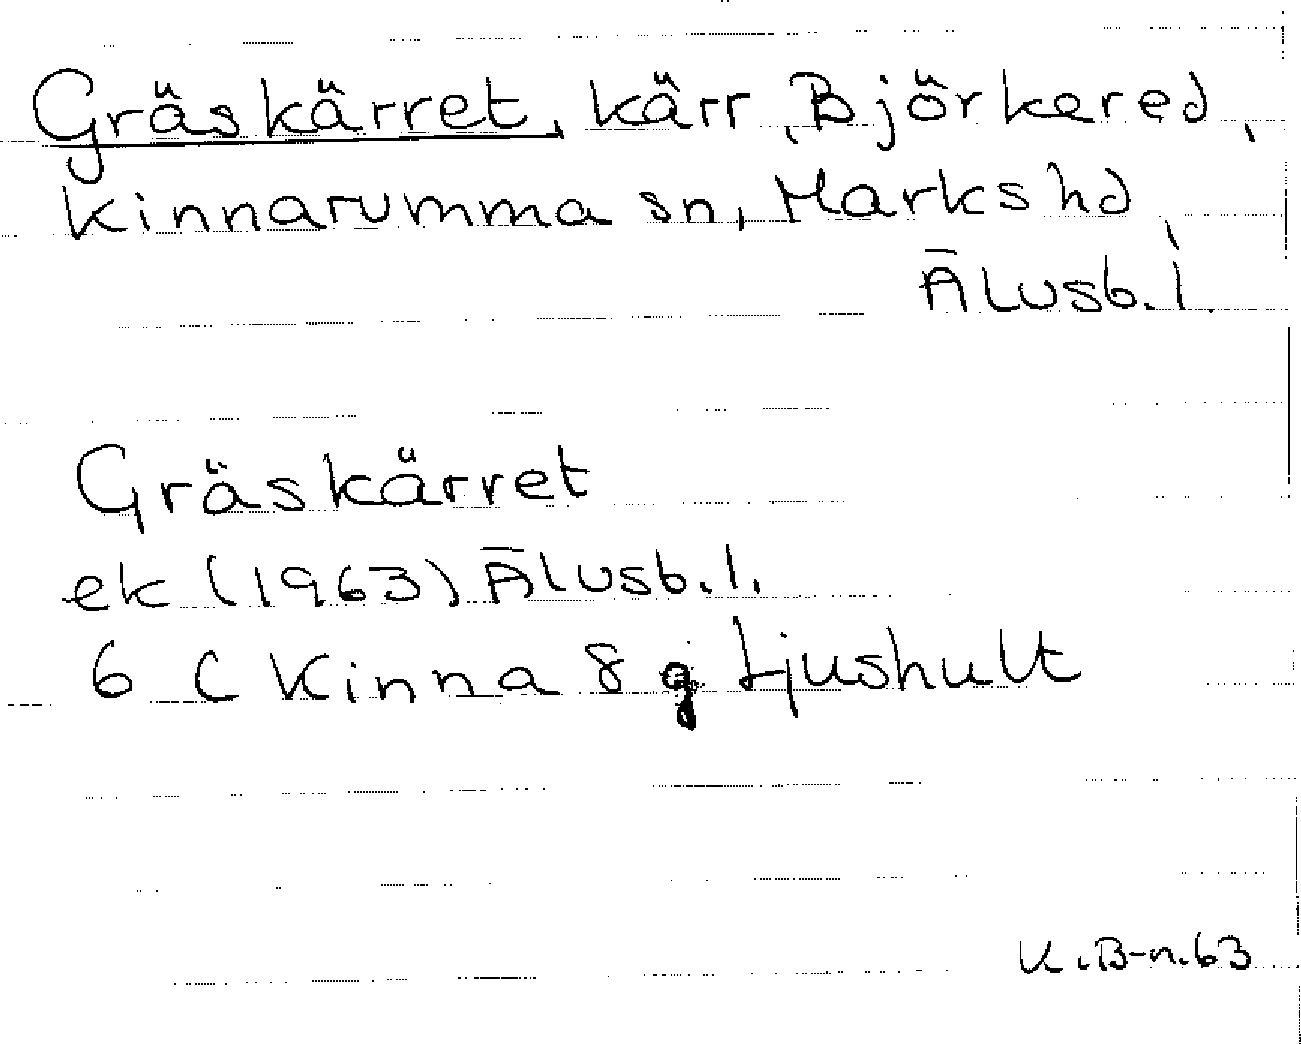 Gräskärret, kärr, Björkered,
Kinnarumma sn, Marks hd,
Älvsb. l.
Gräskärret
ek (1963) Älvsb. l.
6 C Kinna 8 g Ljushult
K.B-n.63